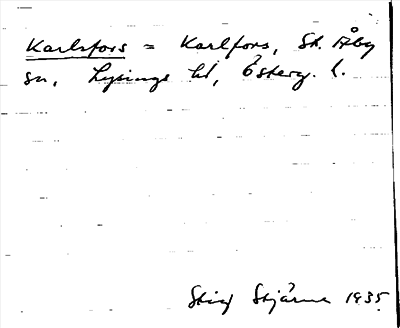 Karlsfors = Karlfors, St. Åby
sn, Lysings hd, Österg. l.
Stig Stjärne 1935